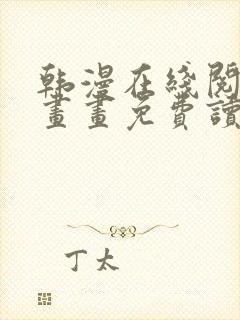 韩漫在线阅
畫畫免費讀
丁太